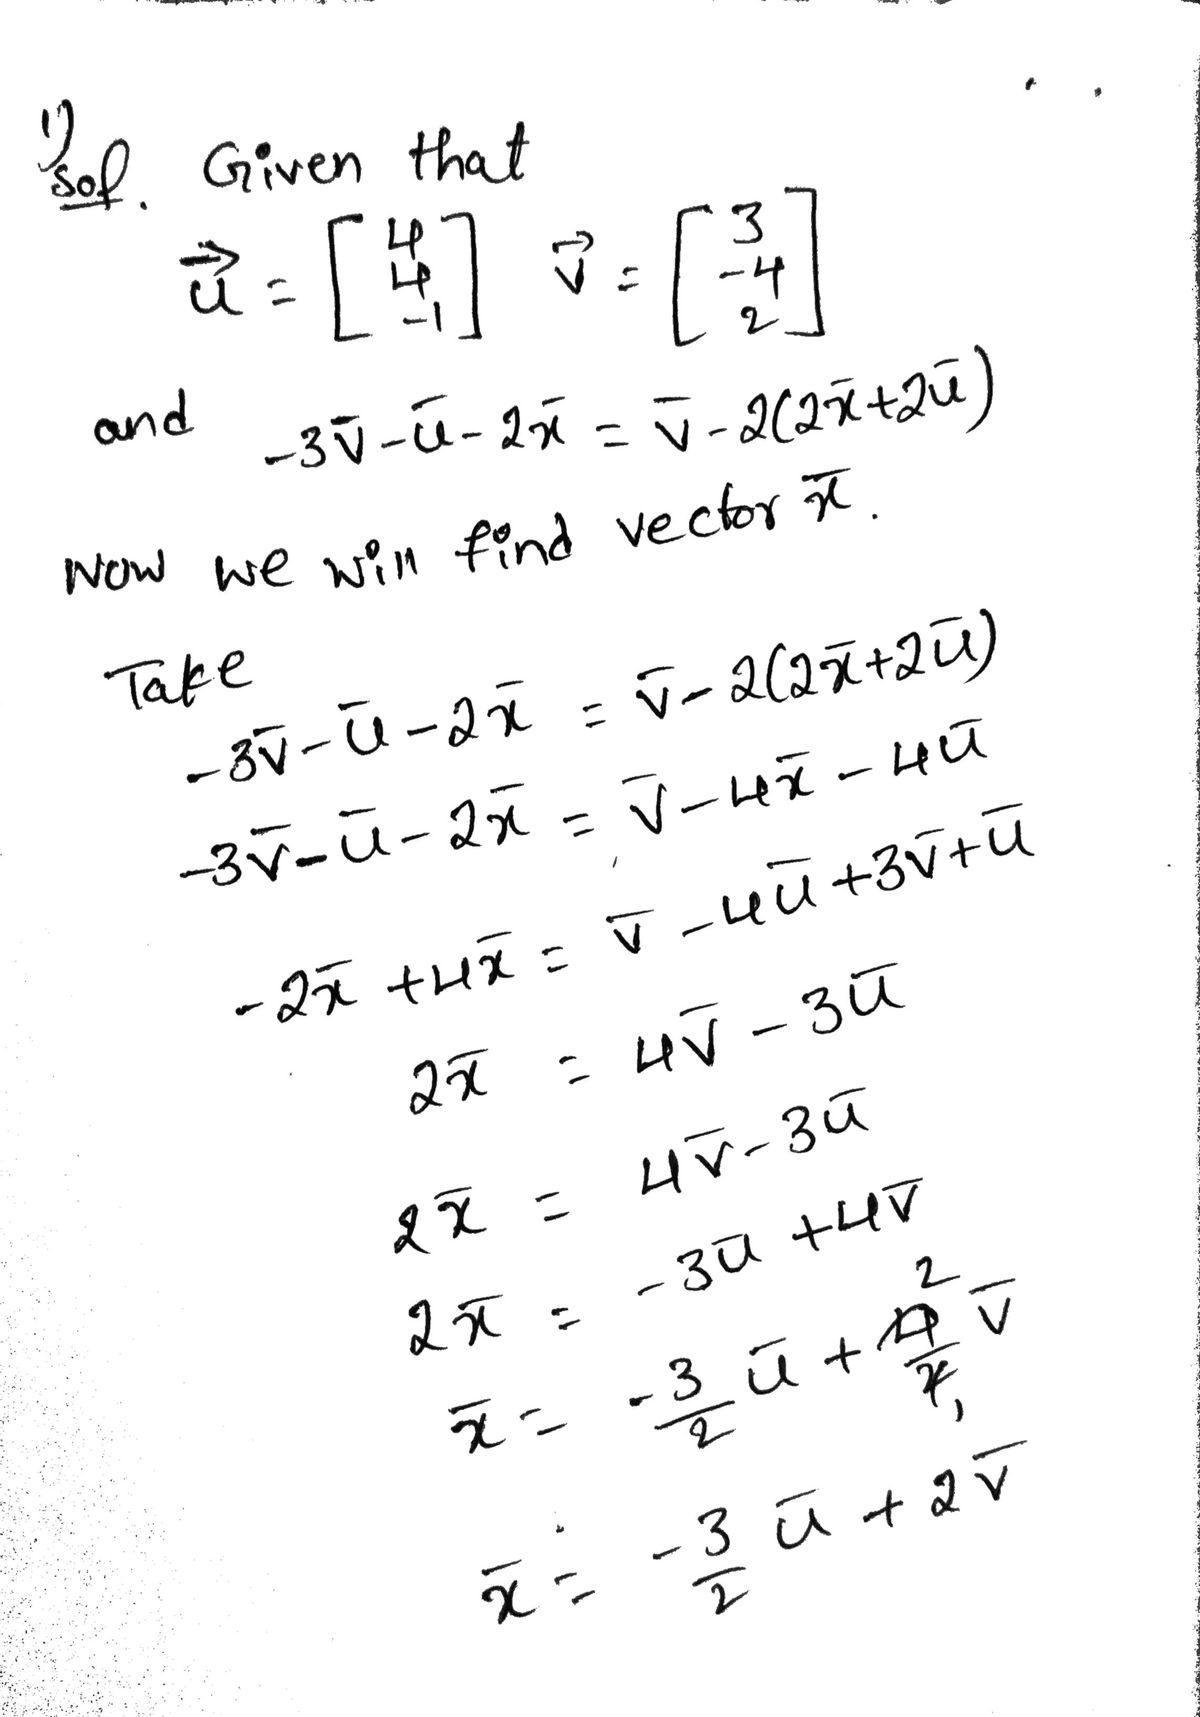 1)
Sol. Given that
u⃗ = [4 4 -1] v⃗ = [3 -4 2]
and -3v̄ - ū - 2x̄ = v̄ - 2(2x̄+2ū)
Now we will find vector x̄.
Take
-3v̄ - ū - 2x̄ = v̄ - 2(2x̄+2ū)
-3v̄ - ū - 2x̄ = v̄ - 4x̄ - 4ū
-2x̄ + 4x̄ = v̄ - 4ū + 3v̄ + ū
2x̄ = 4v̄ - 3ū
2x̄ = 4v̄ - 3ū
2x̄ = -3ū + 4v̄
x̄ = -3/2 ū + 4/2 v̄ 2 1
x̄ = -3/2 ū + 2v̄